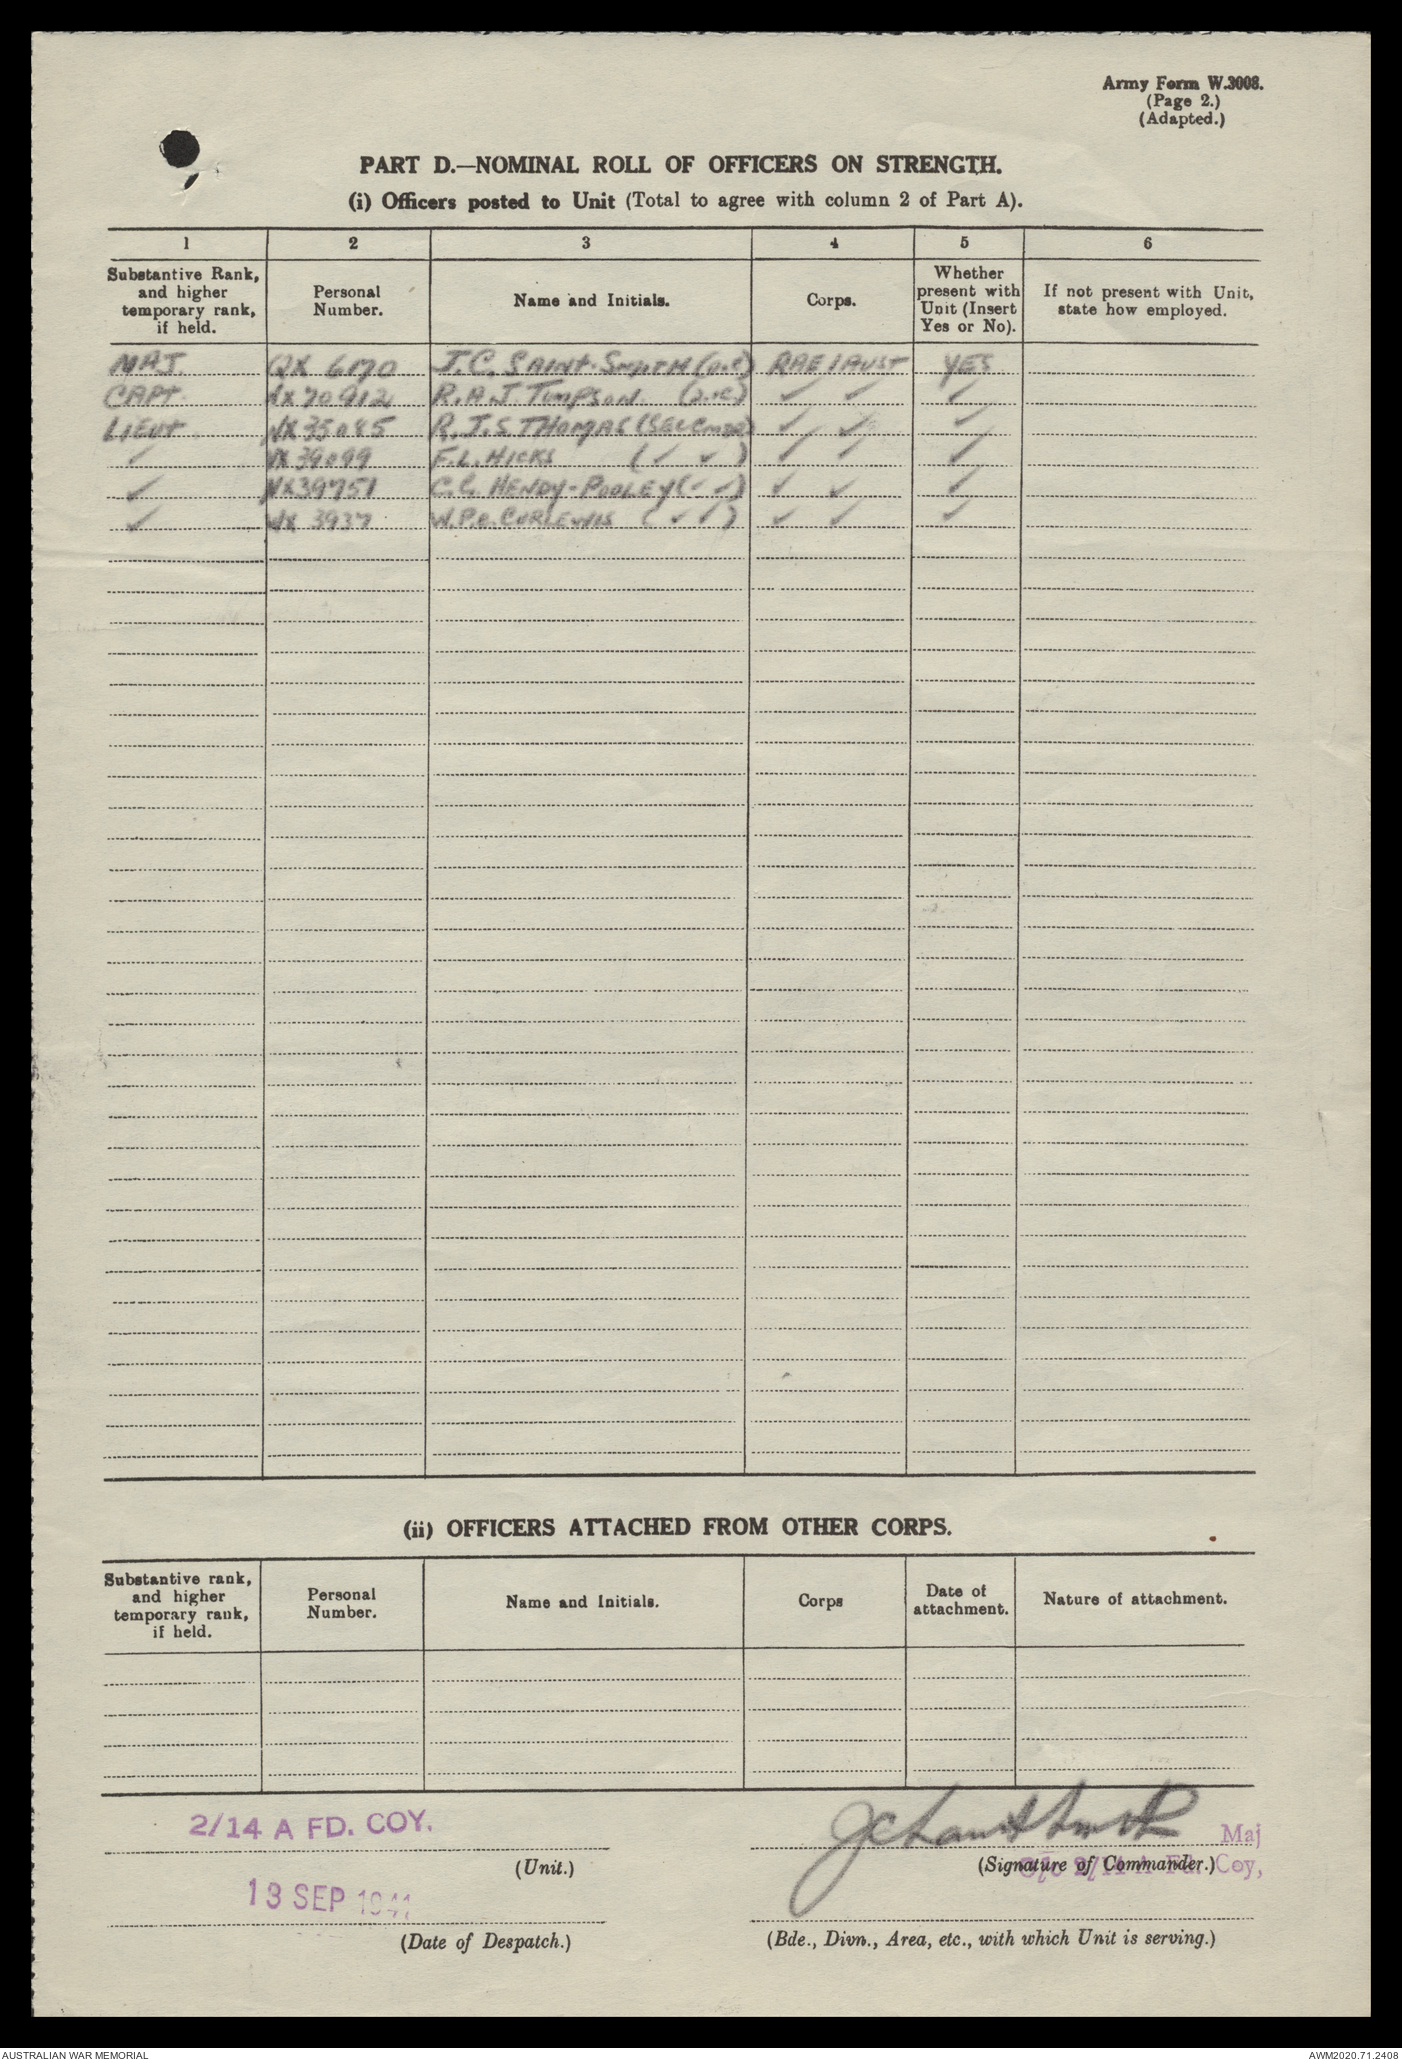 Army Form W.3008.
(Page 2.)
(Adapted.)
PART D.—NOMINAL ROLL OF OFFICERS ON STRENGTH.
(i) Officers posted to Unit (Total to agree with column 2 of Part A).
1 2 3 4 5 6
Substantive Rank, and higher temporary rank, if held. Personal Number. Name and Initials. Corps. Whether present with Unit (Insert Yes or No). If not present with Unit, state how employed.
MAJ. QX 6170 J.C. SAINT-SMITH (O.C) RAE 1 AUST YES
CAPT. 70912 R.A.J. TOMPSON. (2.i.c) ✓ ✓ ✓
LIEUT NX35045 R.J.S. THOMAS (SEC CMDR) ✓ ✓ ✓
✓ 39099 F.L. HICKS (✓ ✓) ✓ ✓ ✓
✓ NX39751 C.C. HENDY-POOLEY (✓ ✓) ✓ ✓ ✓
✓ 3937 W.P.C. CURLEWIS (✓ ✓) ✓ ✓ ✓
(ii) OFFICERS ATTACHED FROM OTHER CORPS.
Substantive rank, and higher temporary rank, if held. Personal Number. Name and Initials. Corps Date of attachment. Nature of attachment.
2/14 A FD. COY.
(Unit.)
Maj
(Signature of Commander.)
O/c 2/14 A Fd. Coy,
13 SEP 1941
(Date of Despatch.)
(Bde., Divn., Area, etc., with which Unit is serving.)
AUSTRALIAN WAR MEMORIAL
AWM2020.71.2408